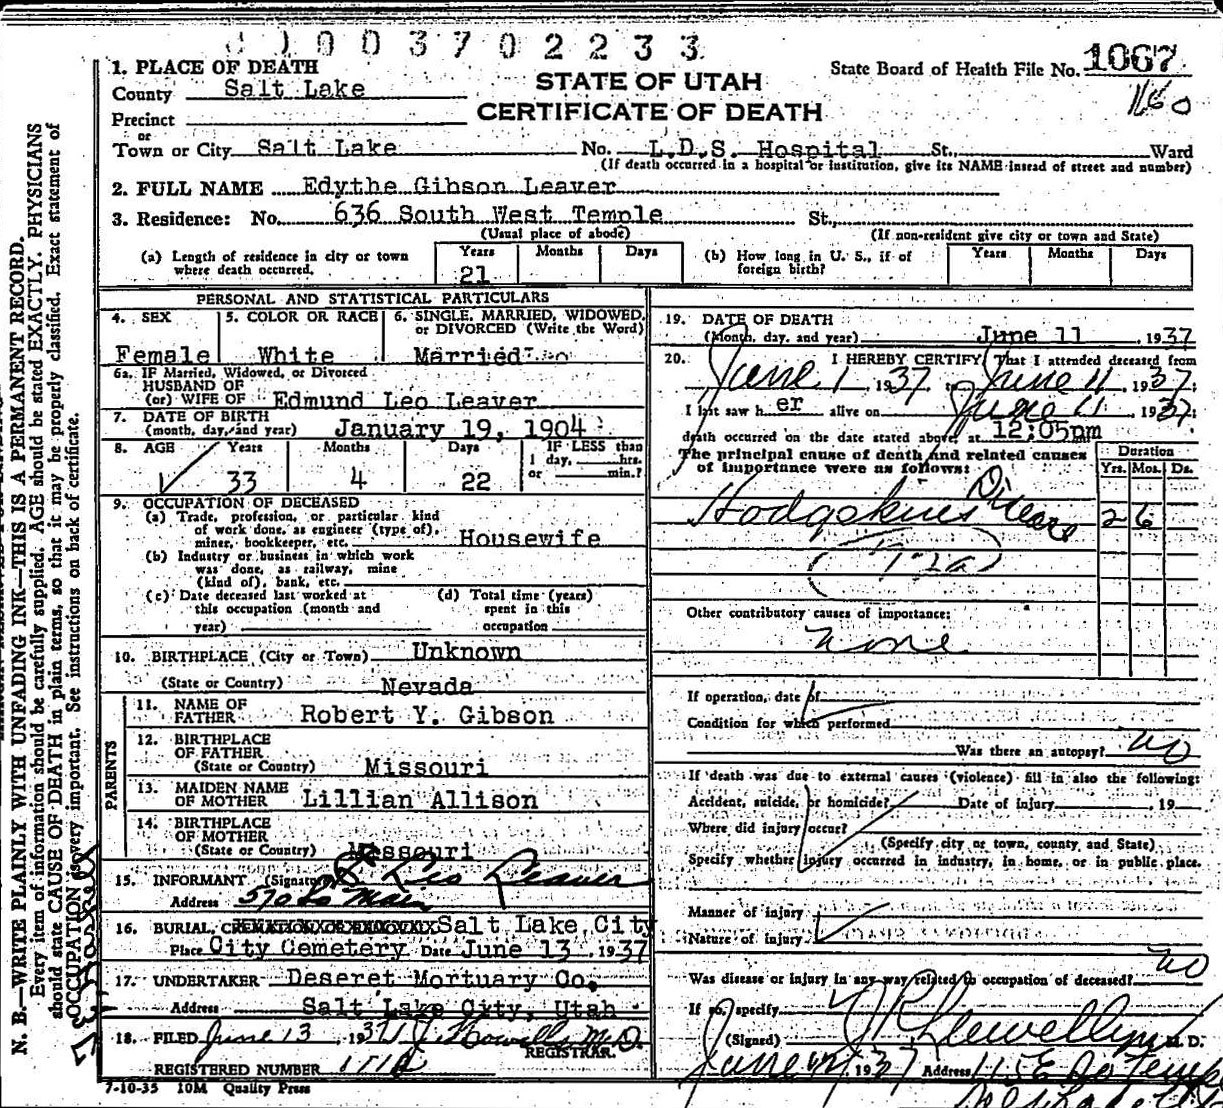 0 0 3 7 0 2 2 3 3
1. PLACE OF DEATH
County Salt Lake
Precinct
or
Town or City Salt Lake
STATE OF UTAH
CERTIFICATE OF DEATH
State Board of Health File No. 1067
160
No. L.D.S. Hospital St., Ward
(If death occurred in a hospital or institution, give its NAME insead of street and number)
2. FULL NAME Edythe Gibson Leaver
3. Residence: No. 636 South West Temple St,
(Usual place of abode)
(If non-resident give city or town and State)
(a) Length of residence in city or town
where death occurred.
Years Months Days
21
(b) How long in U. S., if of
foreign birth?
Years Months Days
PERSONAL AND STATISTICAL PARTICULARS
4. SEX
Female
5. COLOR OR RACE
White
6. SINGLE, MARRIED, WIDOWED,
or DIVORCED (Write the Word)
Married
6a. IF Married, Widowed, or Divorced
HUSBAND OF
(or) WIFE OF Edmund Leo Leaver
7. DATE OF BIRTH
(month, day, and year) January 19, 1904
8. AGE Years Months Days IF LESS than
1 day, hrs.
or min.?
33 4 22
9. OCCUPATION OF DECEASED
(a) Trade, profession, or particular kind
of work done, as engineer (type of),
miner, bookkeeper, etc. Housewife
(b) Industry or business in which work
was done, as railway, mine
(kind of), bank, etc.
(c) Date deceased last worked at
this occupation (month and
year)
(d) Total time (years)
spent in this
occupation
10. BIRTHPLACE (City or Town) Unknown
(State or Country) Nevada
PARENTS
11. NAME OF
FATHER Robert Y. Gibson
12. BIRTHPLACE
OF FATHER
(State or Country) Missouri
13. MAIDEN NAME
OF MOTHER Lillian Allison
14. BIRTHPLACE
OF MOTHER
(State or Country) Missouri
15. INFORMANT (Signature) E Leo Leaver
Address 570 So Main
16. BURIAL, CREMATION OR REMOVAL Salt Lake City
Place City Cemetery Date June 13, 1937
17. UNDERTAKER Deseret Mortuary Co.
Address Salt Lake City, Utah
18. FILED June 13 1937 M.D.
REGISTRAR.
REGISTERED NUMBER
7-10-35 10M Quality Press
19. DATE OF DEATH
(Month, day, and year) June 11, 1937
20. I HEREBY CERTIFY, That I attended deceased from
June 1, 1937, June 11, 1937;
I last saw her alive on June 11, 1937;
death occurred on the date stated above, at 12:05pm
The principal cause of death and related causes
of importance were as follows:
Duration
Yrs. Mos. Ds.
Hodgskins Disease 2 6
(72a)
Other contributory causes of importance:
none
If operation, date of
Condition for which performed
Was there an autopsy? no
If death was due to external causes (violence) fill in also the following:
Accident, suicide, or homicide? Date of injury , 19
Where did injury occur?
(Specify city or town, county and State)
Specify whether injury occurred in industry, in home, or in public place.
Manner of injury
Nature of injury
Was disease or injury in any way related to occupation of deceased? no
If so, specify
(Signed) Llewellyn M. D.
June 1937 Address 115 E So Temple
N. B.—WRITE PLAINLY WITH UNFADING INK—THIS IS A PERMANENT RECORD.
Every item of information should be carefully supplied. AGE should be stated EXACTLY. PHYSICIANS
should state CAUSE OF DEATH in plain terms, so that it may be properly classified. Exact statement of
OCCUPATION is very important. See instructions on back of certificate.